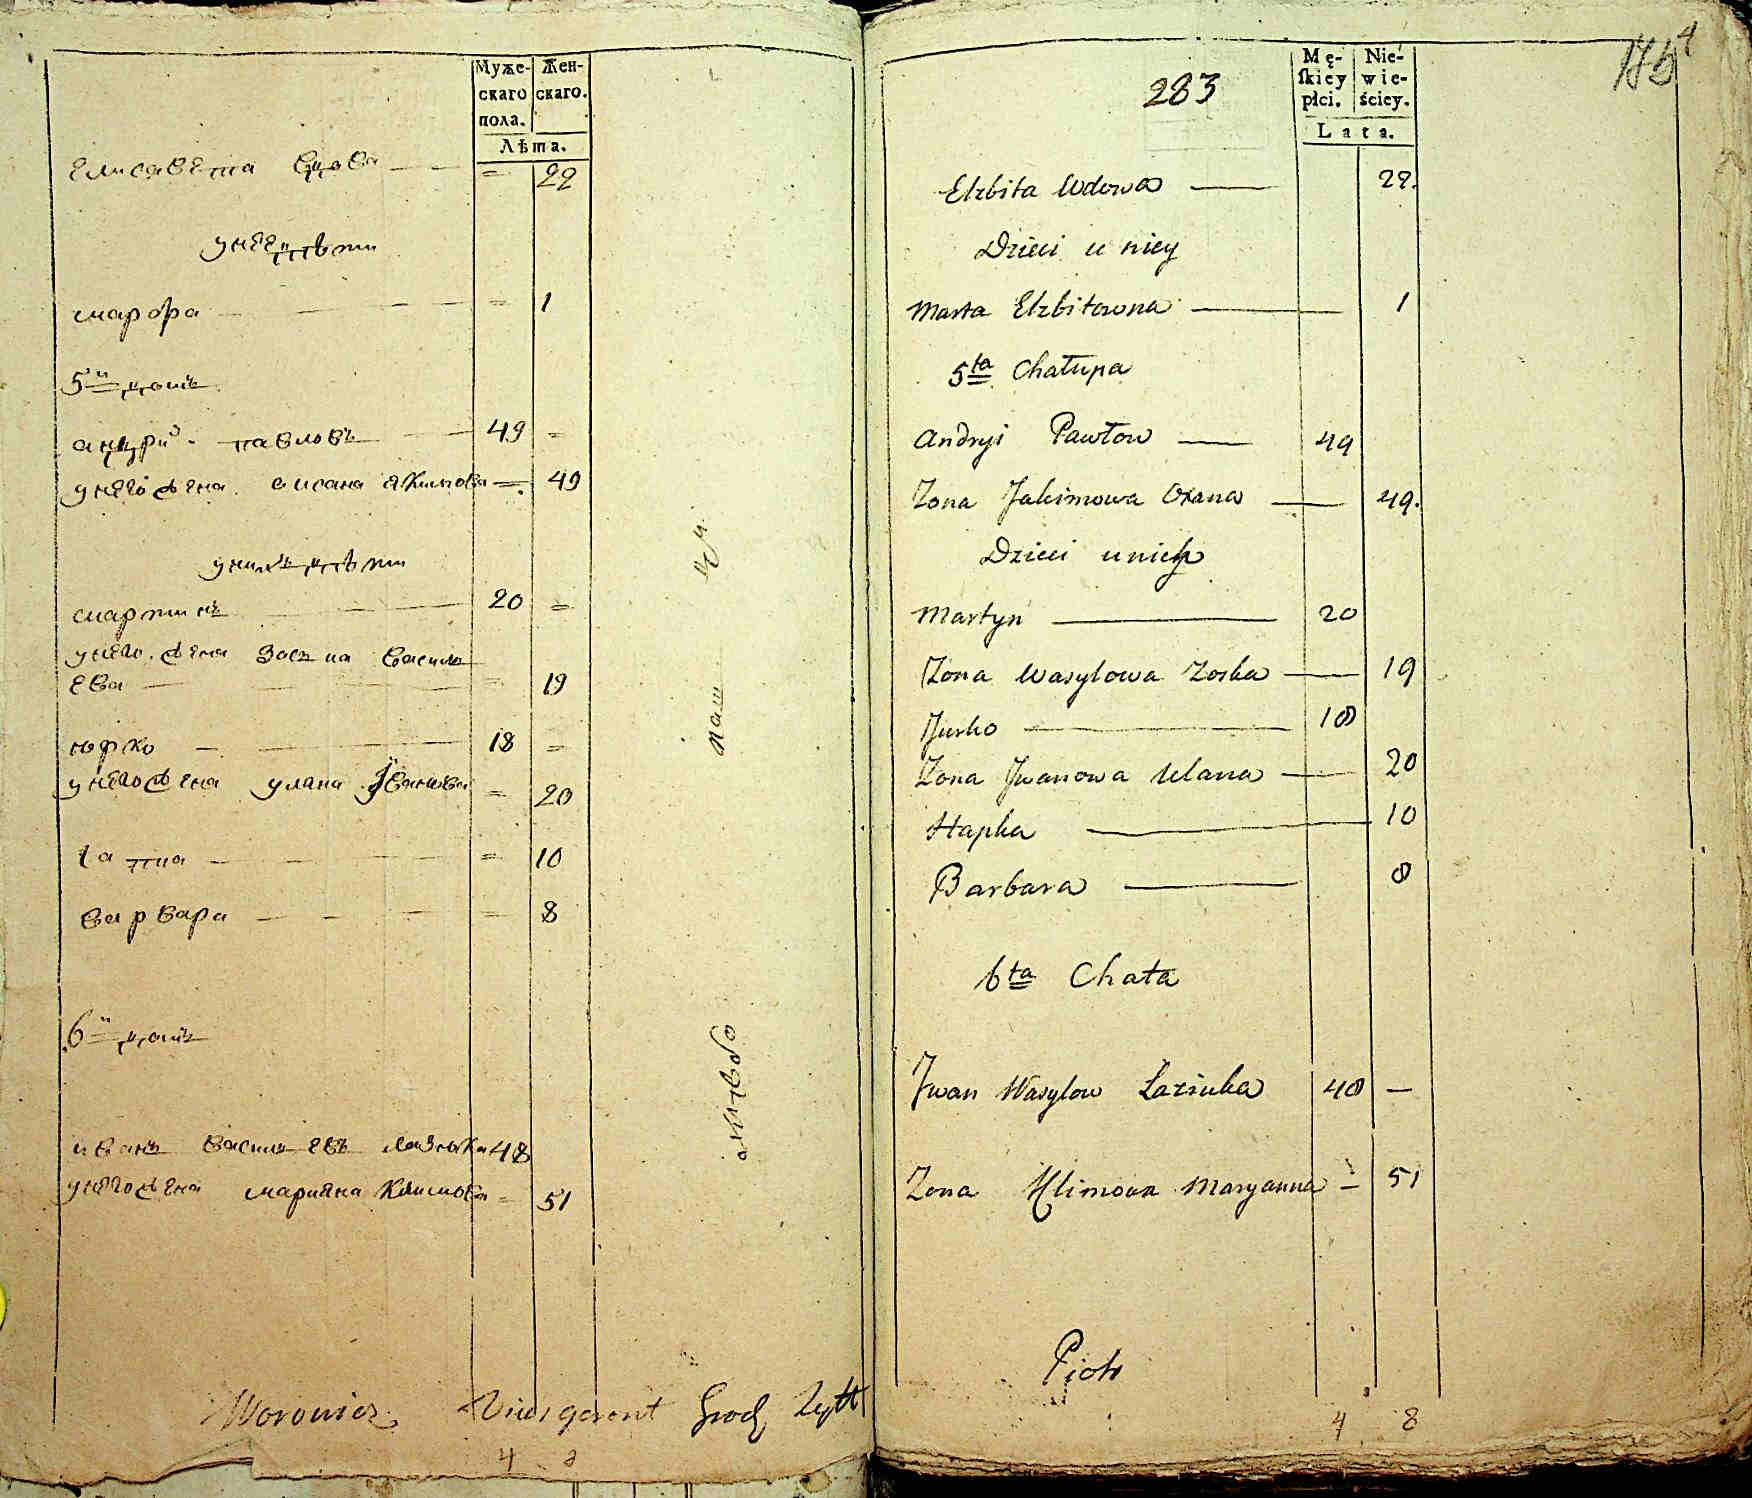 Муже-
скаго
пола.
Жен-
скаго.
Лѣта.
елисавета вдова — = 22
у нее дѣти
марфа — = 1
5й домъ
андрий павловъ — 49 =
у него жена оксана якимова = 49
у нихъ дѣти
мартинъ — 20 =
у него жена зоська василь
ева — = 19
юрко — 18 =
у него жена улана иванова = 20
гапка — = 10
варвара — = 8
6й домъ
иванъ васильевъ лазюка 48
у него жена марияна климова = 51
Woronicz Vicesgerent Grodz Żytt
4 8
175
4
283
Mę-
skiey
płci.
Nie-
wie-
ściey.
Lata.
Elzbita Wdowa — 22.
Dzieci u niey
Marta Elzbitowna — 1
5ta Chałupa
Andryi Pawłow — 49
Zona Jakimowa Oxana — 49.
Dzieci u nich
Martyn — 20
Zona Wasylowa Zoska — 19
Jurko — 18
Zona Jwanowa Ulana — 20
Hapka — 10
Barbara — 8
6ta Chata
Jwan Wasylow Łaziuka 48 —
Zona Klimowa Maryanna — 51
Piotr
4 8